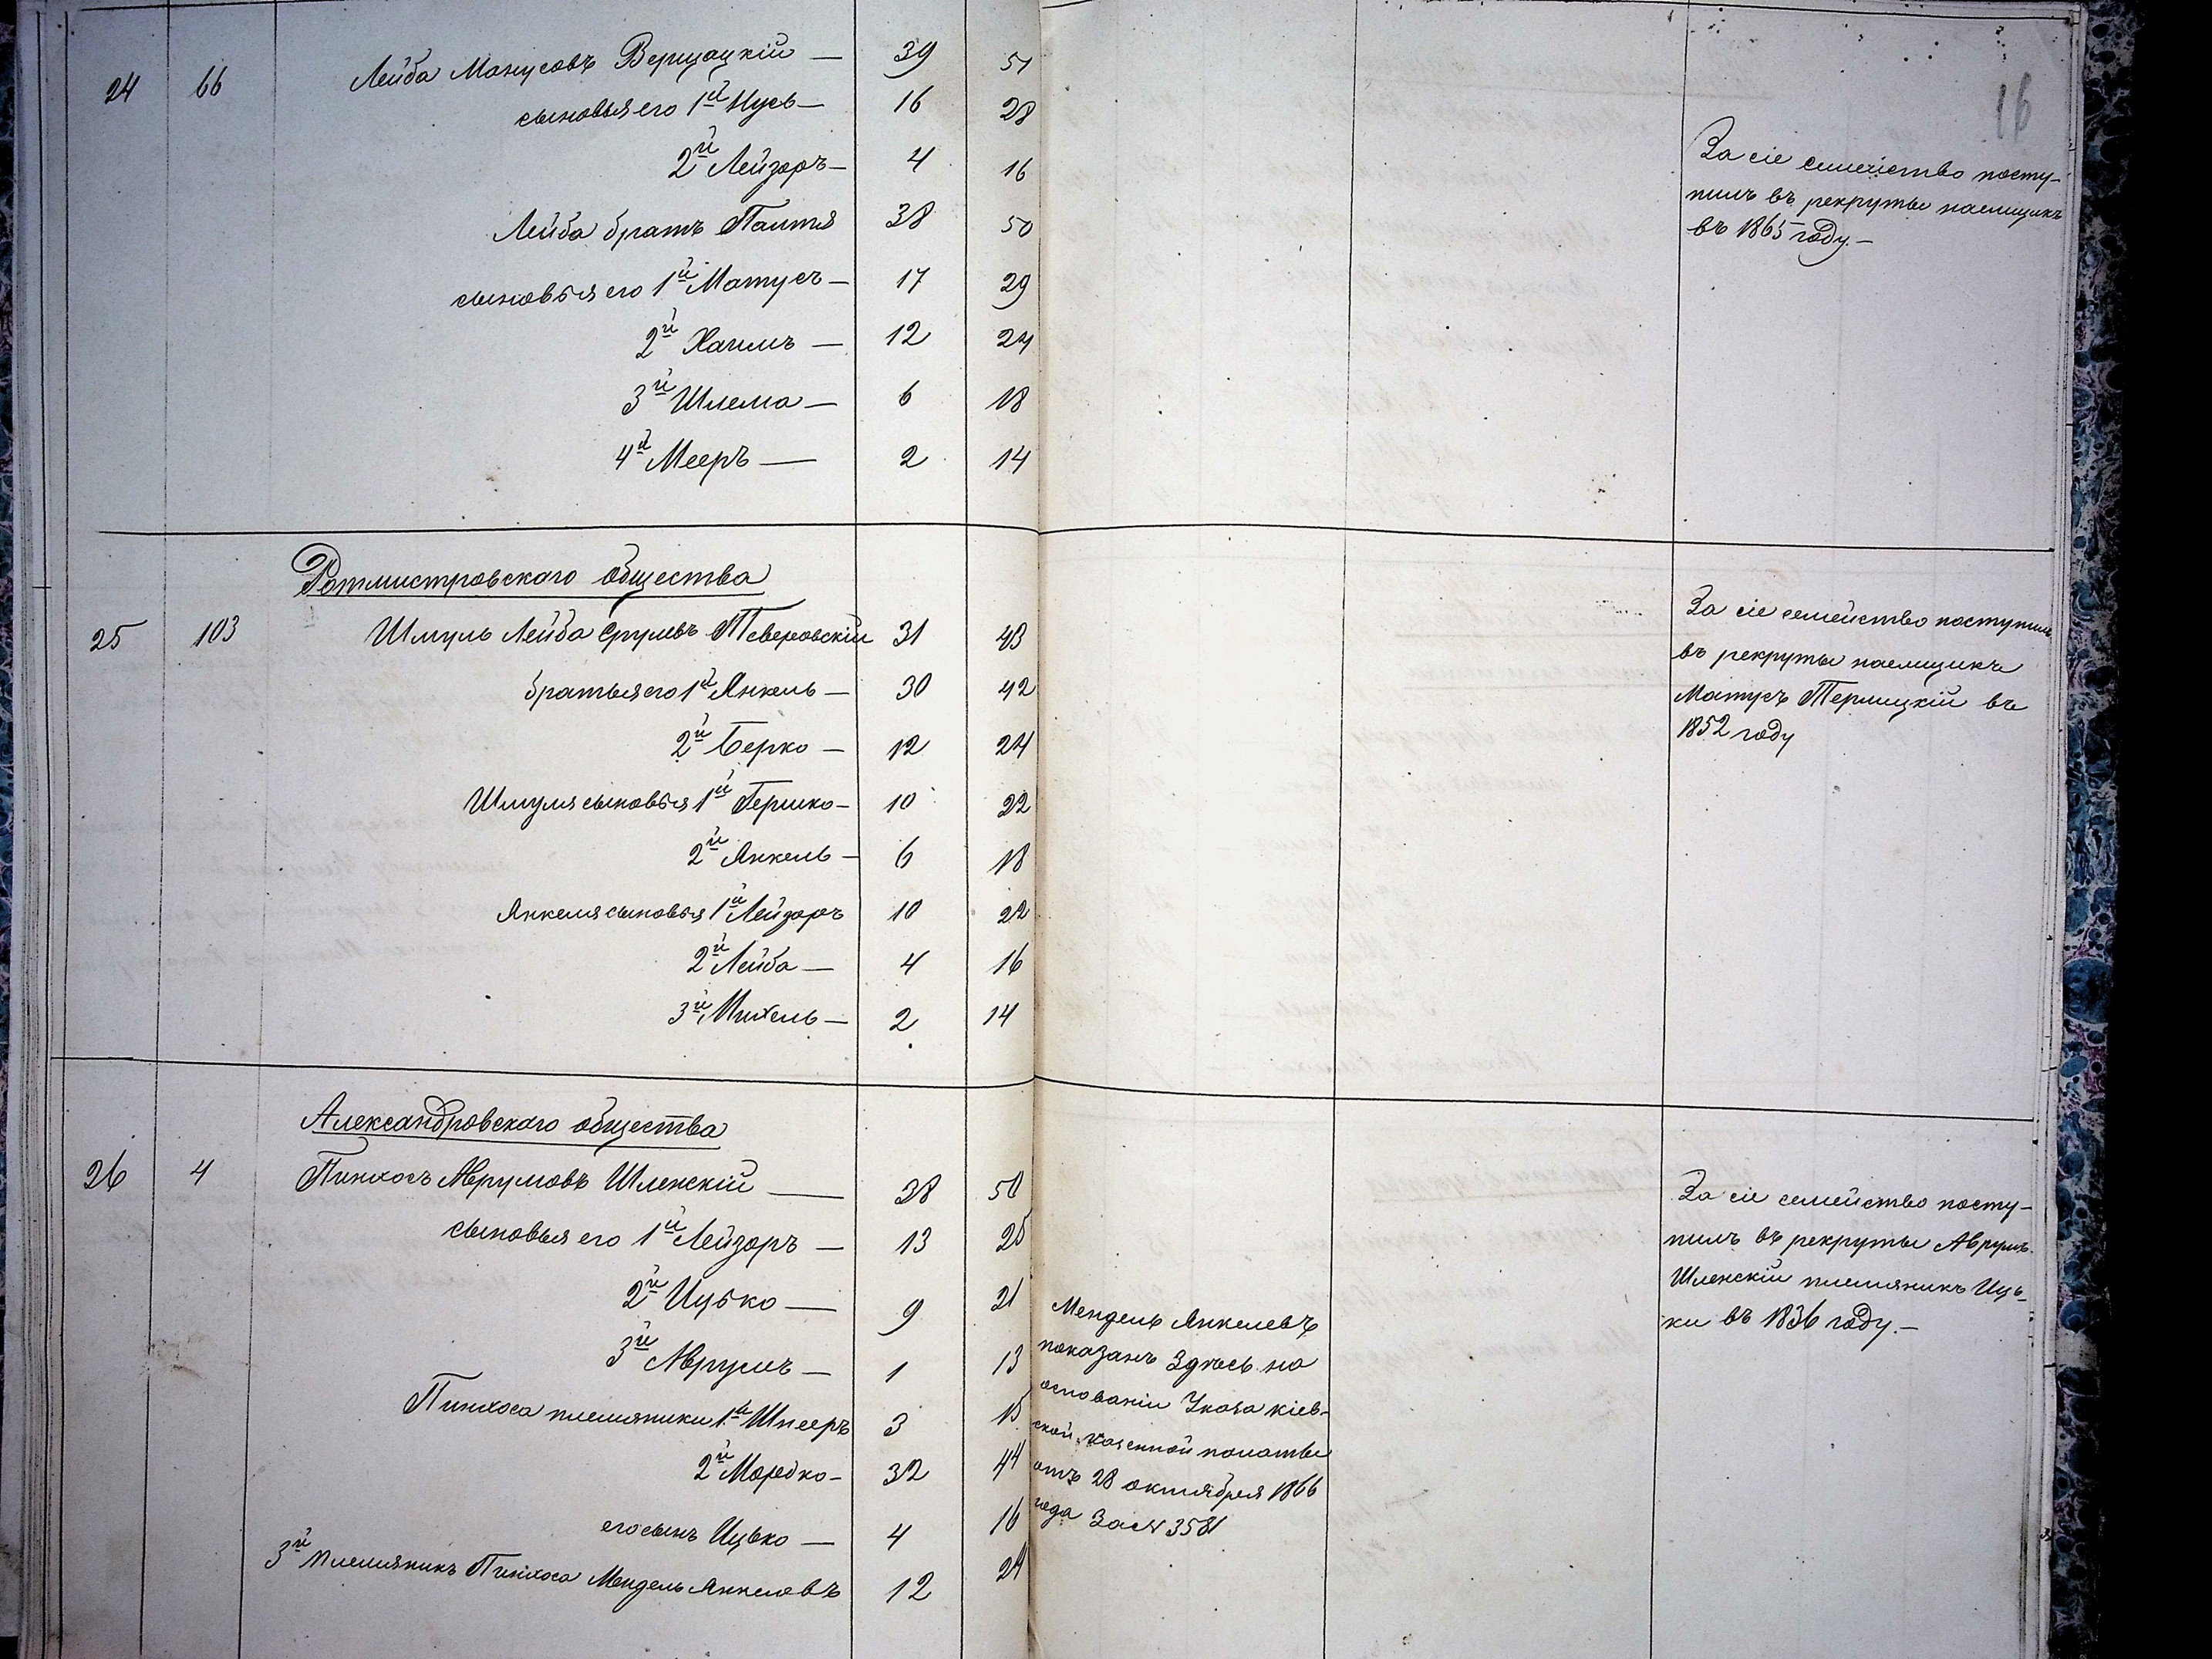 16
24 66 Лейба Манусовъ Вершацкій — 39 51
сыновья его 1й Нусь — 16 28
2й Лейзоръ — 4 16
Лейба братъ Пальтя 38 50
сыновья его 1й Матусъ — 17 29
2й Хаимъ — 12 24
3й Шлема — 6 18
4й Мееръ — 2 14
За сіе семейство посту-
пилъ въ рекруты наемщикъ
въ 1865 году. —
Ротмистровскаго общества
25 103 Шмуль Лейба Срулевъ Теверовскій 31 43
братья его 1й Янкель — 30 42
2й Берко — 12 24
Шмуля сыновья 1й Гершко — 10 22
2й Янкель — 6 18
Янкеля сыновья 1й Лейзоръ 10 22
2й Лейба — 4 16
3й Михель — 2 14
За сіе семейство поступилъ
въ рекруты наемщикъ
Матусъ Терлицкій въ
1852 году
Александровскаго общества
26 4 Пинхосъ Аврумовъ Шленскій — 38 50
сыновья его 1й Лейзоръ — 13 25
2й Ицько — 9 21
3й Аврумъ — 1 13
Пинхоса племяники 1й Шнееръ 3 15
2й Мордко — 32 44
его сынъ Ицько — 4 16
3й племяникъ Пинхоса Мендель Янкелевъ 12 24
Мендель Янкелевъ
показанъ здѣсь на
основаніи Указа кіев-
ской казенной палаты
отъ 28 октября 1866
года за № 3581
За сіе семейство посту-
пилъ въ рекруты Аврумъ
Шленскій племяникъ Иць-
ки въ 1836 году. —